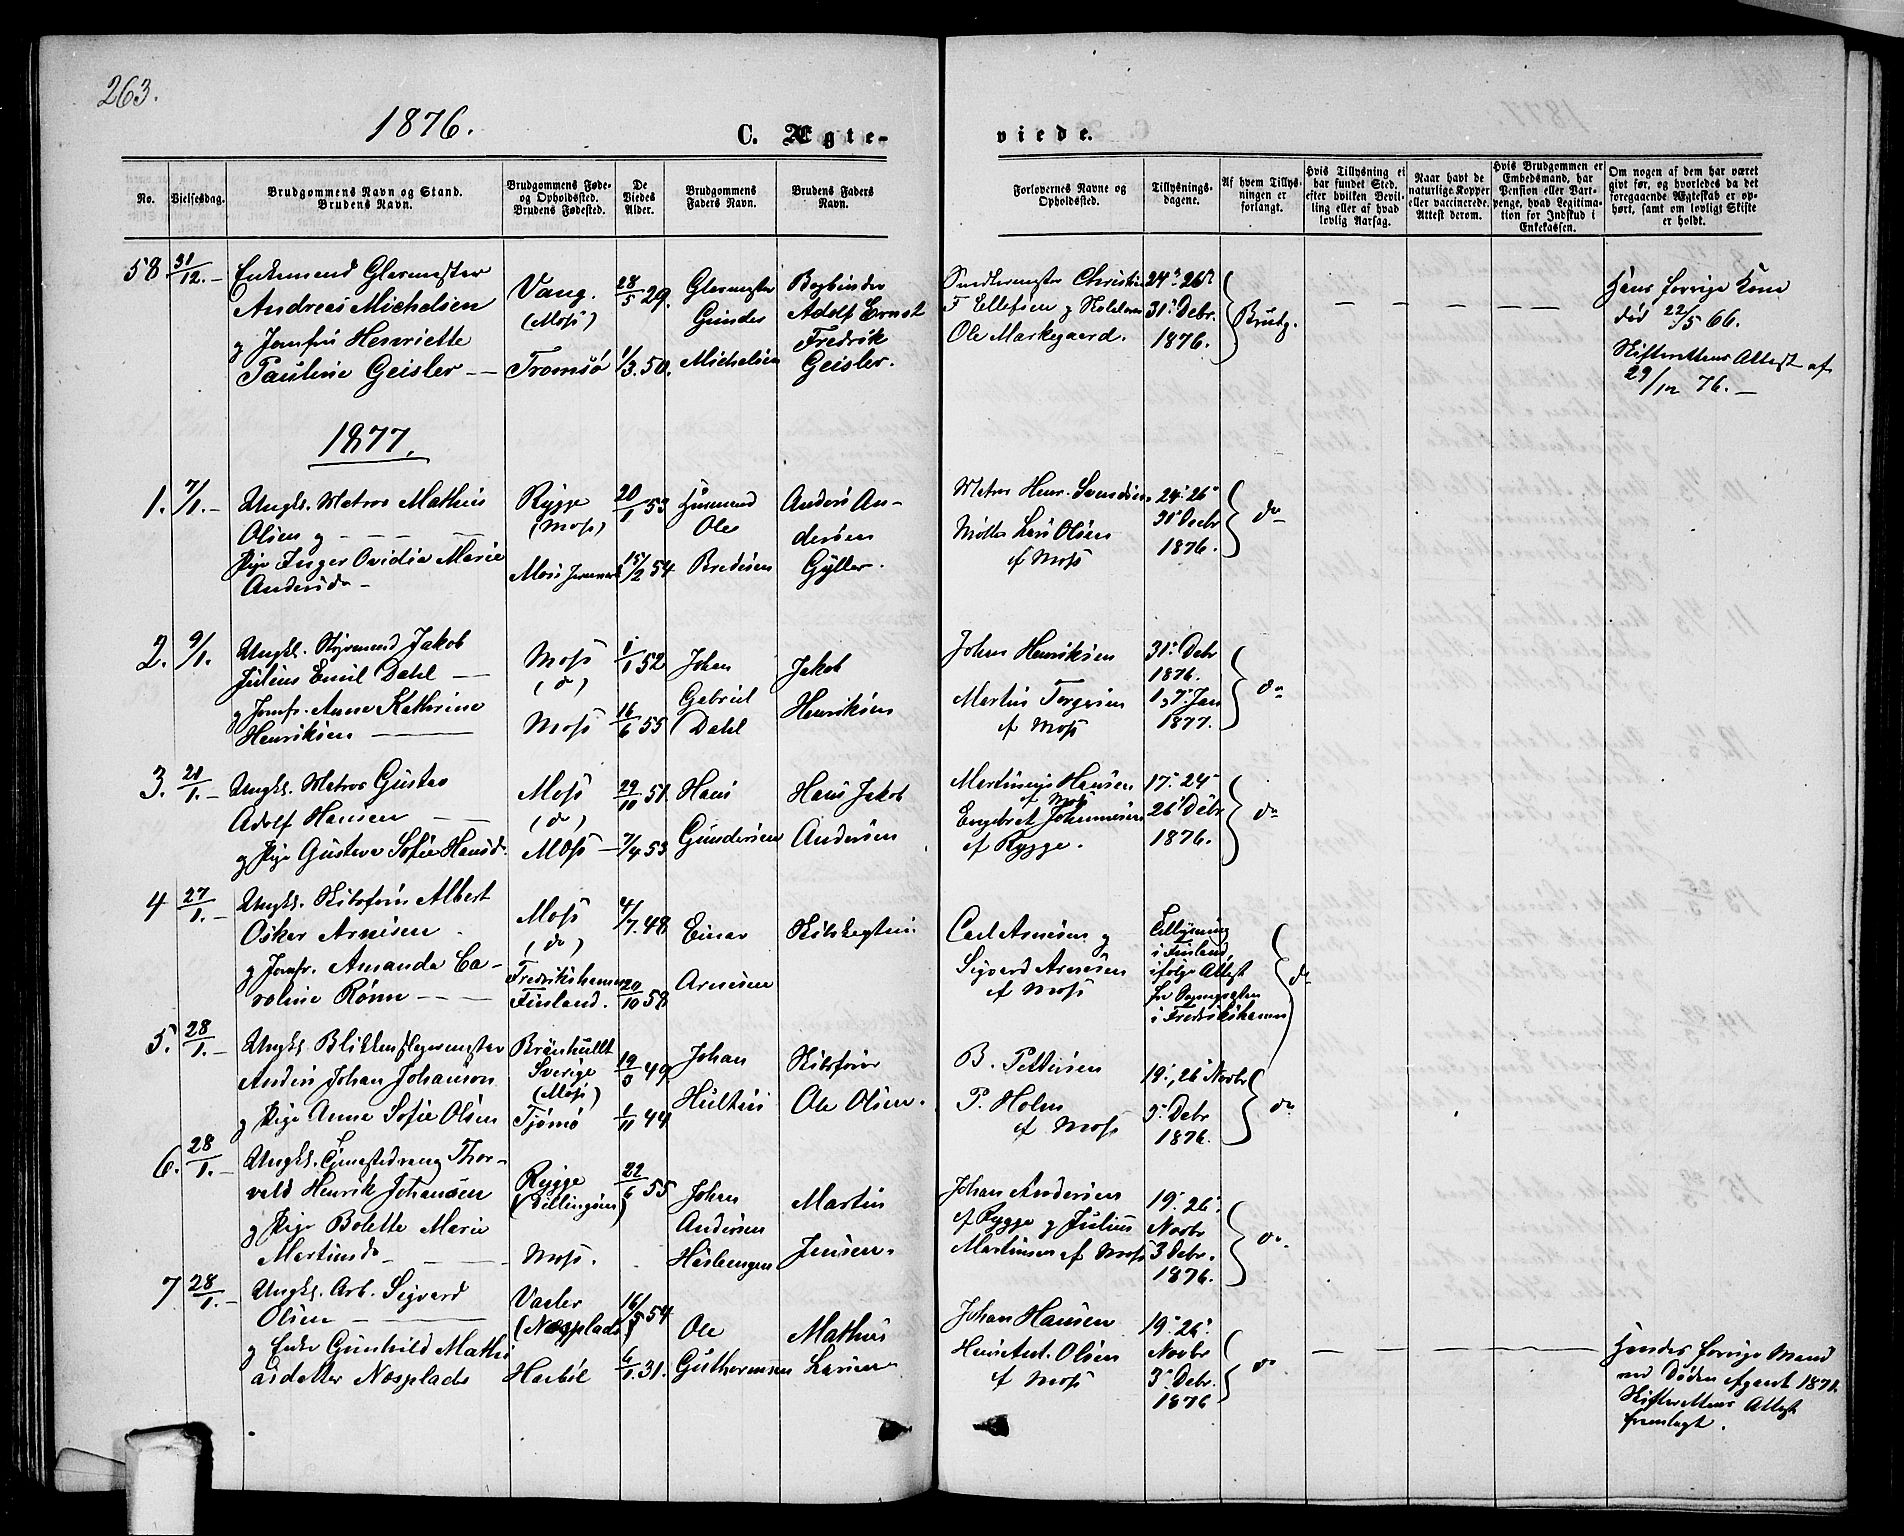 263.
1876.
C. Ægte-
viede.
No.
Vielsesdag.
Brudgommens Navn og Stand.
Brudens Navn.
Brudgommens Føde-
og Opholdssted.
Brudens Fødested.
De
Viedes
Alder.
Brudgommens
Faders Navn.
Brudens Faders
Navn.
Forlovernes Navne og
Opholdssted.
Tillysnings-
dagene.
Af hvem Tillys-
ningen er
forlangt.
Hvis Tillysning ei
har fundet Sted,
efter hvilken Bevil-
ling eller af hvad
lovlig Aarsag.
Naar havt de
naturlige Kopper
eller vaccinerede.
Attest derom.
Hvis Brudgommen er
Embedsmand, har
Pension eller Vart-
penge, hvad Legitima-
tion for Indskud i
Enkekassen.
Om nogen af dem har været
givt før, og hvorledes da det
foregaaende Ægteskab er op-
hørt, samt om lovligt Skifte
er holdt.
58 31/12. Enkemand Glarmester
Andreas Michelsen
og Jomfru Henriette
Pauline Geisler
Vang.
(Moss)
Tromsø
28/5 29.
1/3. 50.
Glarmester
Gunder
Michelsen
Bogbinder
Adolf Ernst
Fredrik
Geisler.
Christian
F. Ellefsen og
Ole Markegaard.
24. 26.
31. Debr.
1876.
Brudg.
Hans forrige Kone
død 22/5 66.
Skifterettens Attest af
29/12 76.
1877.
1. 7/1. Ungk. Matros Mathias
Olsen og
Pige Inger Ovidia Marie
Andersd.
Rygge
(Moss)
Moss
20/1 53
15/2 54
Husmand
Ole
Bredesen
Anders An-
dersen
Gyller.
Matros Henr. Svendsen
Møller Lars Olsen
af Moss
24. 26.
31 Decbr
1876.
do
2. 9/1. Ungk. Styrmand Jakob
Julius Emil Dahl
og Jomfr. Anne Kathrine
Henriksen
Moss
(do)
Moss
1/1 52
16/6 55
Johan
Gabriel
Dahl
Jakob
Henriksen
Johan Henriksen
Martin Torgersen
af Moss
31. Debr
1876.
1, 7. Jan
1877.
do
3. 21/1. Ungk. Matros Gustav
Adolf Hansen
og Pige Gustava Sofie Hansd.
Moss
(do)
Moss
29/10 51.
7/4 53
Hans
Gundersen
Hans Jakob
Andersen
Hansen
af Moss
Engebret Johannesen
af Rygge.
17. 24.
26. Debr
1876.
do
4 27/1. Ungk. Skibsfører Albert
Oskar Arnesen
og Jomfr. Amanda Ca-
roline Rönn
Moss
(do)
Fredrikshamn
Finland.
4/7. 48
20/10 58
Einar
Arnesen
Carl Arnesen og
Sigvard Arnesen
af Moss
Tillysning
i Finland,
ifølge Attest
fra Sognepræsten
i Fredrikshamn
do
5. 28/1. Ungk. Blikkenslagermester
Anders Johan Johanson
og Pige Anne Sofie Olsen
Sverige
(Moss)
Tjømø
49.
1/11 44
Johan
Skibsfører
Ole Olsen.
B. Pettersen
P. Holm
af Moss
19., 26 Novbr
3. Debr
1876.
do
6. 28/1. Ungk. Thor-
vald Henrik Johansen
og Pige Bolette Marie
Martinsd.
Rygge
(Dillingøen)
Moss.
22/6 55
Johan
Andersen
Martin
Jensen.
Johan Andersen
af Rygge og Julius
Martinsen af Moss
19. 26.
Novbr
3 Debr.
1876.
do.
7 28/1. Ungk. Arb. Sigvard
Olsen
og Enke Gunhild Mathi-
asdatter Næsplads
Vaaler
(Næsplads)
Haabøl
16/5 54
6/1. 31.
Ole
Guthormsen
Mathias
Larsen
Johan Hansen
Olsen
af Moss
19. 26.
Novbr
3. Debr.
1876
do
Hendes forrige Mand
ved Døden afgaaet 1871.
Skifterettens Attest
fremlagt.